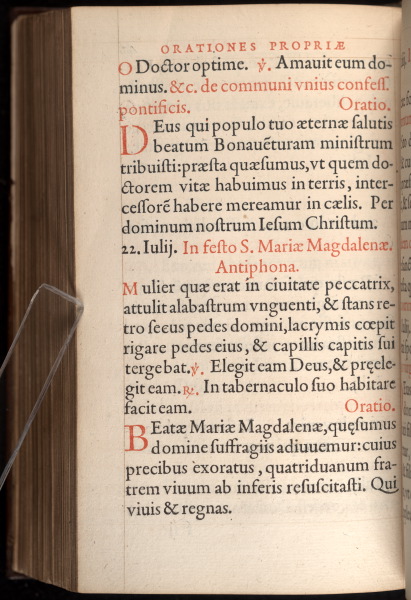 ORATIONES PROPRIÆ
O Doctor optime. ℣. Amauit eum do-
minus. &c. de communi vnius confess.
pontificis. Oratio.
DEus qui populo tuo æternæ salutis
beatum Bonauēturam ministrum
tribuisti: præsta quæsumus, vt quem do-
ctorem vitæ habuimus in terris, inter-
cessorē habere mereamur in cælis. Per
dominum nostrum Iesum Christum.
22. Iulij. In festo S. Mariæ Magdalenæ.
Antiphona.
Mulier quæ erat in ciuitate peccatrix,
attulit alabastrum vnguenti, & stans re-
tro secus pedes domini, lacrymis cœpit
rigare pedes eius, & capillis capitis sui
tergebat. ℣. Elegit eam Deus, & pręele-
git eam. ℟. In tabernaculo suo habitare
facit eam. Oratio.
BEatæ Mariæ Magdalenæ, quęsumus
domine suffragiis adiuuemur: cuius
precibus exoratus, quatriduanum fra-
trem viuum ab inferis resuscitasti. Qui
viuis & regnas.